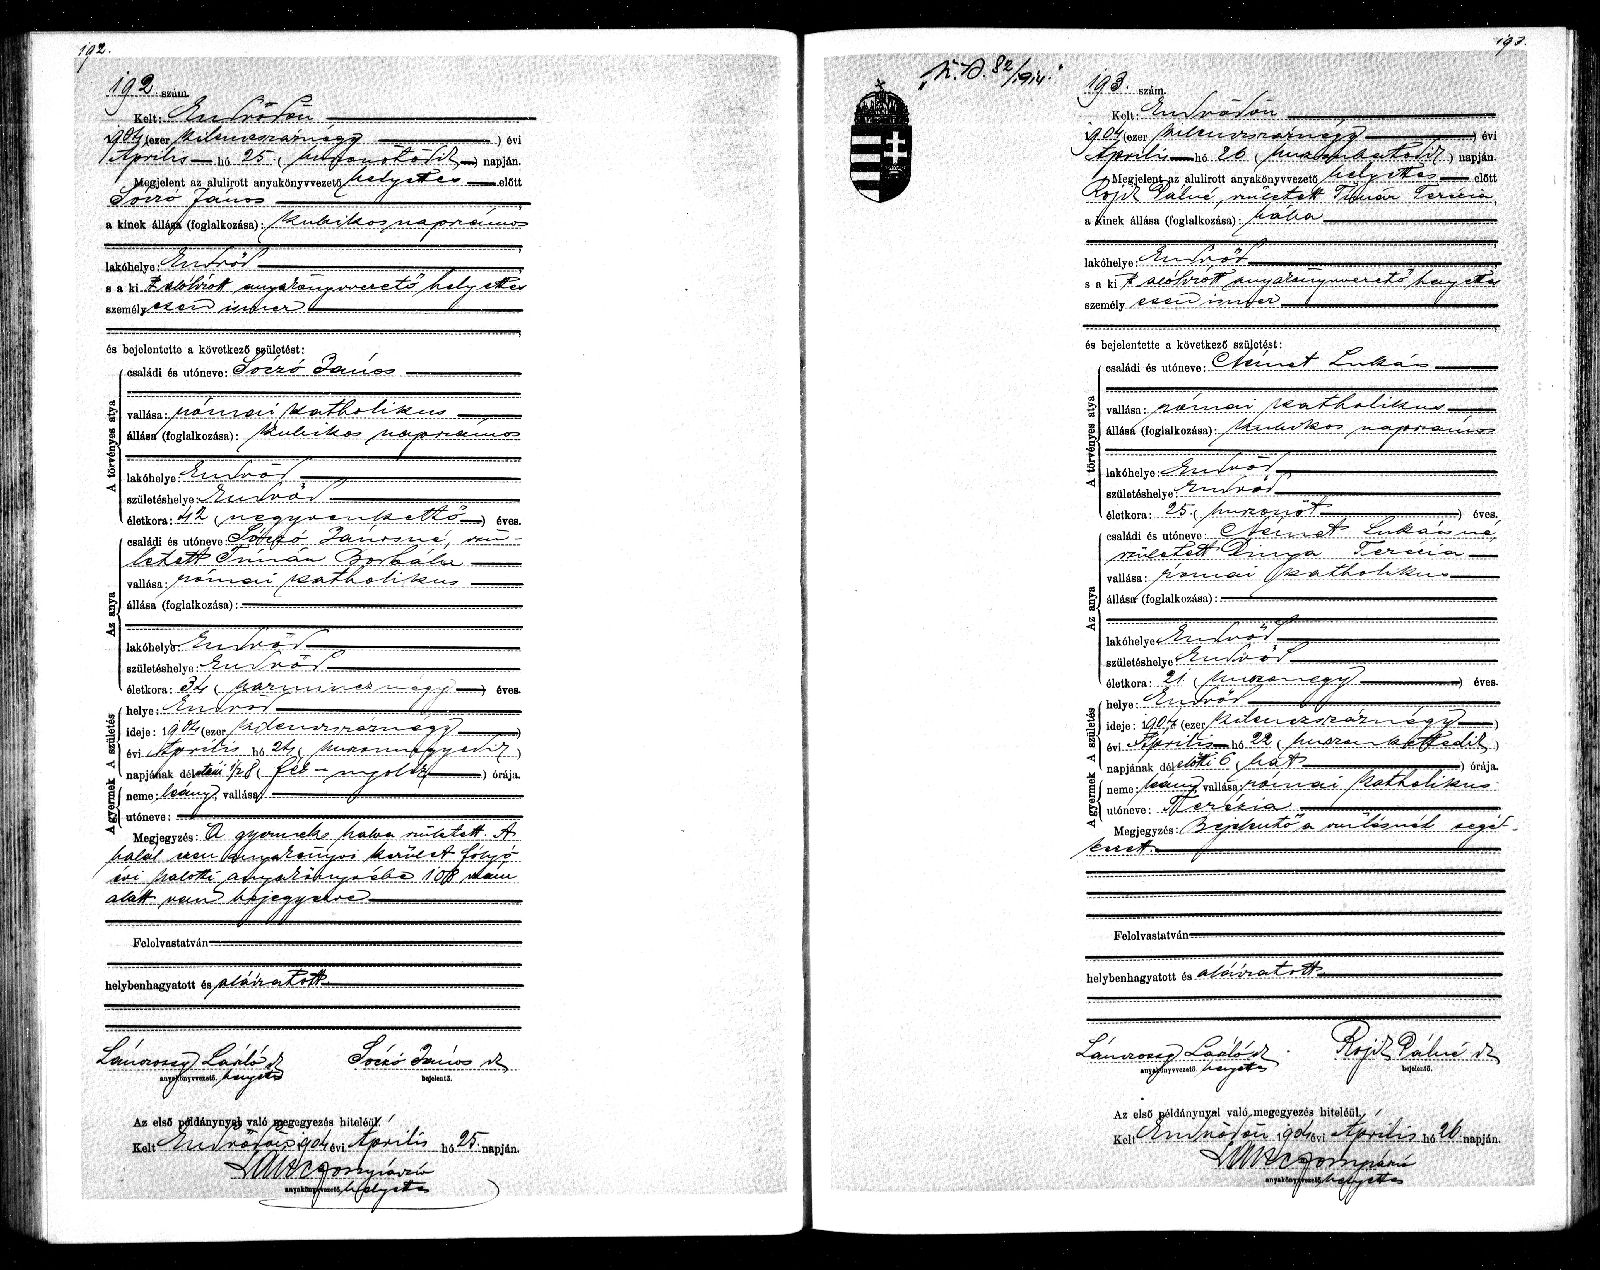 192.
192 szám.
Kelt: Endrődön
1904 (ezer kilenczszáznégy) évi
Április hó 25 (huszonötödik) napján.
Megjelent az alulirott anyakönyvvezető helyettes előtt
Soczó János
a kinek állása (foglalkozása): kubikos napszámos
lakóhelye: Endrőd
s a ki t alólirott anyakönyvvezető helyettes
személyesen ismer
és bejelentette a következő születést:
A törvényes atya
családi és utóneve: Soczó János
vallása: római katholikus
állása (foglalkozása): kubikos napszámos
lakóhelye: Endrőd
születéshelye: Endrőd
életkora: 42 (negyvenkettő) éves.
Az anya
családi és utóneve Soczó Jánosné, szü-
letett Timár Borbála
vallása: római katholikus
állása (foglalkozása):
lakóhelye: Endrőd
születéshelye: Endrőd
életkora: 34 (harmincznégy) éves.
A születés
helye: Endrőd
ideje: 1904 (ezer kilenczszáznégy)
évi Április hó 24 (huszonnegyedik)
napjának délutáni 1/2 8 (fél-nyolcz) órája.
A gyermek
neme: leány, vallása:
utóneve:
Megjegyzés: A gyermek halva született. A
halál ezen anyakönyvi kerület folyó
évi halotti anyakönyvébe 108 szám
alatt van bejegyezve
Felolvastatván
helybenhagyatott és aláiratott
László
anyakönyvvezető helyettes
Soczó János
bejelentő.
Az első példánynyal való megegyezés hiteléül.
Kelt Endrődön 1904 évi Április hó 25. napján.
anyakönyvvezető helyettes
193.
82/1914.
193. szám.
Kelt: Endrődön
1904 (ezer kilenczszáznégy) évi
Április hó 26 (huszonhatodik) napján.
Megjelent az alulirott anyakönyvvezető helyettes előtt
Rojik Pálné, született Timár Terézia
a kinek állása (foglalkozása): bába
lakóhelye: Endrőd
s a ki t alólirott anyakönyvvezető helyettes
személyesen ismer
és bejelentette a következő születést:
A törvényes atya
családi és utóneve: Német Lukás
vallása: római katholikus
állása (foglalkozása): kubikos napszámos
lakóhelye: Endrőd
születéshelye: Endrőd
életkora: 25 (huszonöt) éves.
Az anya
családi és utóneve Német Lukásné,
született Terézia
vallása: római katholikus
állása (foglalkozása):
lakóhelye: Endrőd
születéshelye: Endrőd
életkora: 21 (huszonegy) éves.
A születés
helye: Endrőd
ideje: 1904 (ezer kilenczszáznégy)
évi Április hó 22 (huszonkettedik)
napjának délelőtti 6 (hat) órája.
A gyermek
neme: leány, vallása: római katholikus
utóneve: Terézia
Megjegyzés: Bejelentő a szülésnél segéd-
kezett.
Felolvastatván
helybenhagyatott és aláiratott
László
anyakönyvvezető helyettes
Rojik Pálné
bejelentő.
Az első példánynyal való megegyezés hiteléül.
Kelt Endrődön 1904 évi Április hó 26. napján.
anyakönyvvezető helyettes